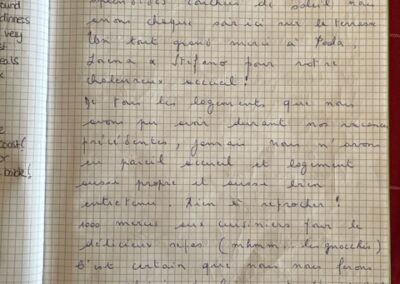 ound
dinness
very
st
eals
k
e
boost!
or
back!
splendides couchers de soleil nous
avons chaque soir ici sur la terrasse
Un tout grand merci à Poda,
Lorena & Stefano pour votre
chaleureux accueil!
De tous les logements que nous
avons pu avoir durant nos vacances
précédentes, jamais nous n'avons
eu pareil accueil et logement
aussi propre et aussi bien
entretenu. Rien à reprocher!
1000 mercis aux cuisiniers pour le
délicieux repas (mhmm... les gnocchis)
C'est certain que nous nous ferons